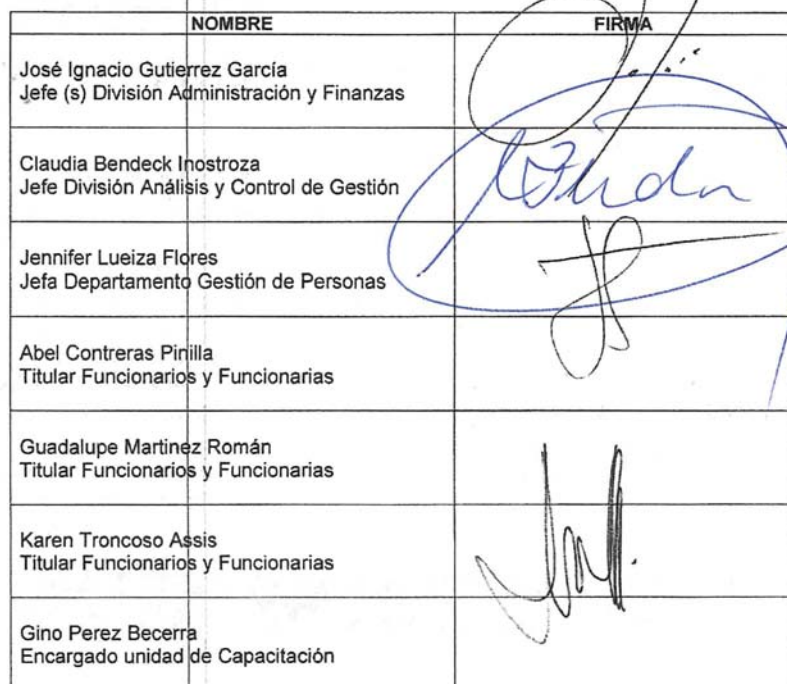 NOMBRE FIRMA
José Ignacio Gutierrez García
Jefe (s) División Administración y Finanzas
Claudia Bendeck Inostroza
Jefe División Análisis y Control de Gestión
Jennifer Lueiza Flores
Jefa Departamento Gestión de Personas
Abel Contreras Pinilla
Titular Funcionarios y Funcionarias
Guadalupe Martinez Román
Titular Funcionarios y Funcionarias
Karen Troncoso Assis
Titular Funcionarios y Funcionarias
Gino Perez Becerra
Encargado unidad de Capacitación